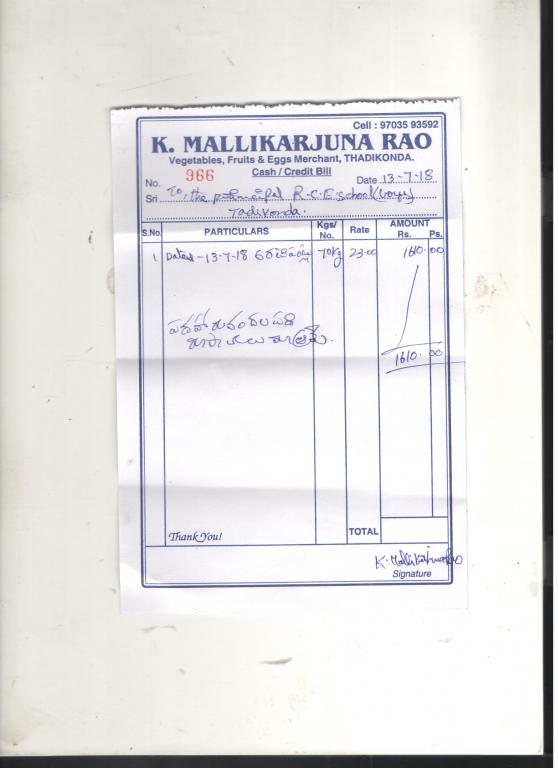 Cell : 97035 93592
K. MALLIKARJUNA RAO
Vegetables, Fruits & Eggs Merchant, THADIKONDA.
Cash / Credit Bill
No. 966 Date 13-7-18
Sri To, the principal R.C.E school (boys)
Tadikonda.
S.No. PARTICULARS Kgs/ No. Rate AMOUNT Rs. Ps.
1 Dated - 13-7-18 70kg 23.00 1610.00
రూపాయలు మాత్రమే.
1610.00
Thank You! TOTAL
K. Mallikarjuna Rao
Signature